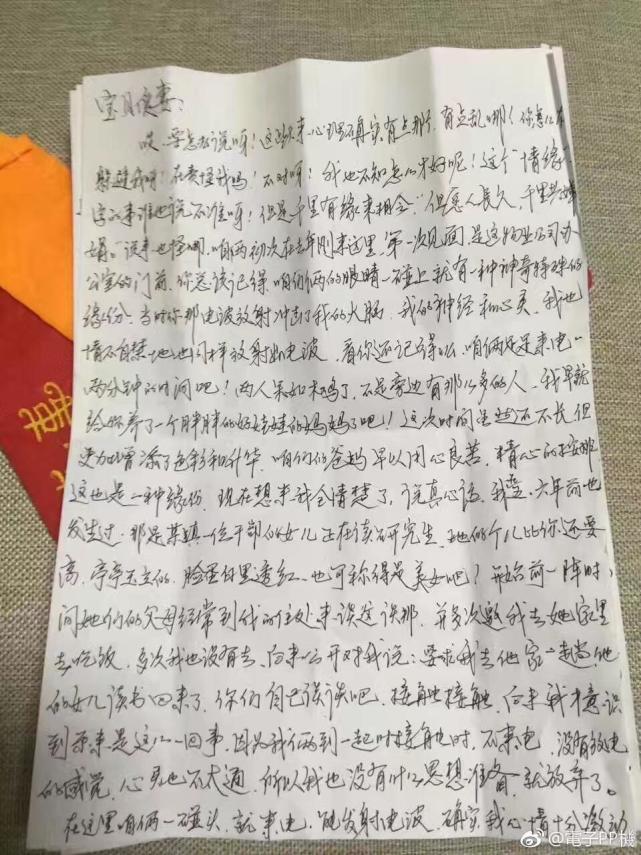 宝贝
哎，要怎么说呀！这些天来心理确实有点那个，有点乱哪！你怎么在
躲避我呀！在责怪我吗！不对呀！我也不知怎么才好呢！这个"情缘"
字的事谁也说不准呀！但是千里有缘来相会，"但愿人长久，千里共婵
娟。"说来也怪哪，咱两初次在去年刚来这里，第一次见面是这物业公司办
公室的门前，你总该记得，咱们俩的眼睛一碰上就有一种神奇特殊的
缘份，当时你那电波放射冲击了我的大脑，我的神经和心灵，我也
情不自禁地也同样放射出电波，看你还记得么，咱俩足足来电
两分钟的时间吧！两人呆如木鸡了，不是旁边有那么多的人，我早就
给你养了一个胖胖的好娃娃的妈妈了吧！这次时间虽然还不长，但
更加增添了色彩和升华，咱们的爸妈早以用心良苦，精心的安排
这也是一种缘份，现在想来我全清楚了，说真心话，我在六年前也
发生过，那是某镇一位干部的女儿正在读研究生，她的个儿比你还要
高，亭亭玉立的，脸蛋付里透红，也可称得是美女吧？开始前一阵时
间她们的父母经常到我的住处来谈这谈那，并多次邀我去她家里
去吃饭，多次我也没有去，向来公开对我说：要求我去他家一趟，他
的女儿读书回来了，你们自己谈谈吧，接触接触，向来我才意识
到原来是这么一回事，因为我们两到一起时接触时，不来电，没有放电
的感觉，心灵也不大通，所以我也没有什么思想准备，就放弃了。
在这里咱俩一碰头，就来电，能发射电波，确实我心情十分激动
@電子PP機